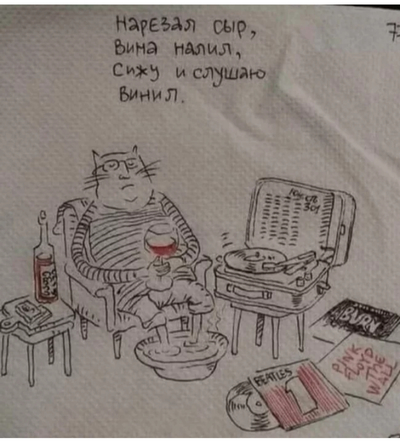 Нарезал сыр,
Вина налил,
Сижу и слушаю
Винил.
301
BURN
PINK
FLOYD
THE
WALL
BEATLES
1